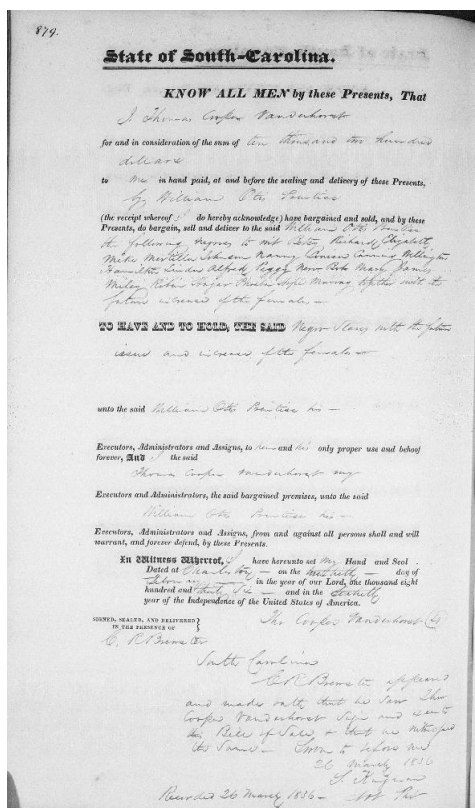 879.
State of South-Carolina.
KNOW ALL MEN by these Presents, That
I Thomas Cooper Vanderhorst
for and in consideration of the sum of ten thousand two hundred
dollars
to me in hand paid, at and before the sealing and delivery of these Presents,
by William Otis
(the receipt whereof I do hereby acknowledge) have bargained and sold, and by these
Presents, do bargain, sell and deliver to the said William Otis
the following negroes to wit Richard Elizabeth
Mike Johnson Nancy
Hamilton Alfred Peggy Bob Mary James
Robin together with the
future increase of the females
TO HAVE AND TO HOLD, THE SAID Negro Slaves with the future
issue and increase of the females
unto the said William Otis his
Executors, Administrators and Assigns, to and his only proper use and behoof
forever, And I the said
Thomas Cooper Vanderhorst my
Executors and Administrators, the said bargained premises, unto the said
William Otis his
Executors, Administrators and Assigns, from and against all persons shall and will
warrant, and forever defend, by these Presents.
In Witness Whereof, I have hereunto set my Hand and Seal
Dated at Charleston on the day of
in the year of our Lord, one thousand eight
hundred and thirty Six and in the Sixtieth
year of the Independence of the United States of America.
SIGNED, SEALED, AND DELIVERED
IN THE PRESENCE OF
Tho Cooper Vanderhorst
C. R. Brewster
South Carolina
C R Brewster appeared
and made oath that he saw Tho
Cooper Vanderhorst Sign and
this Bill of Sale, & that he witnessed
the Same Sworn to before me
26 March 1836
Recorded 26 March 1836